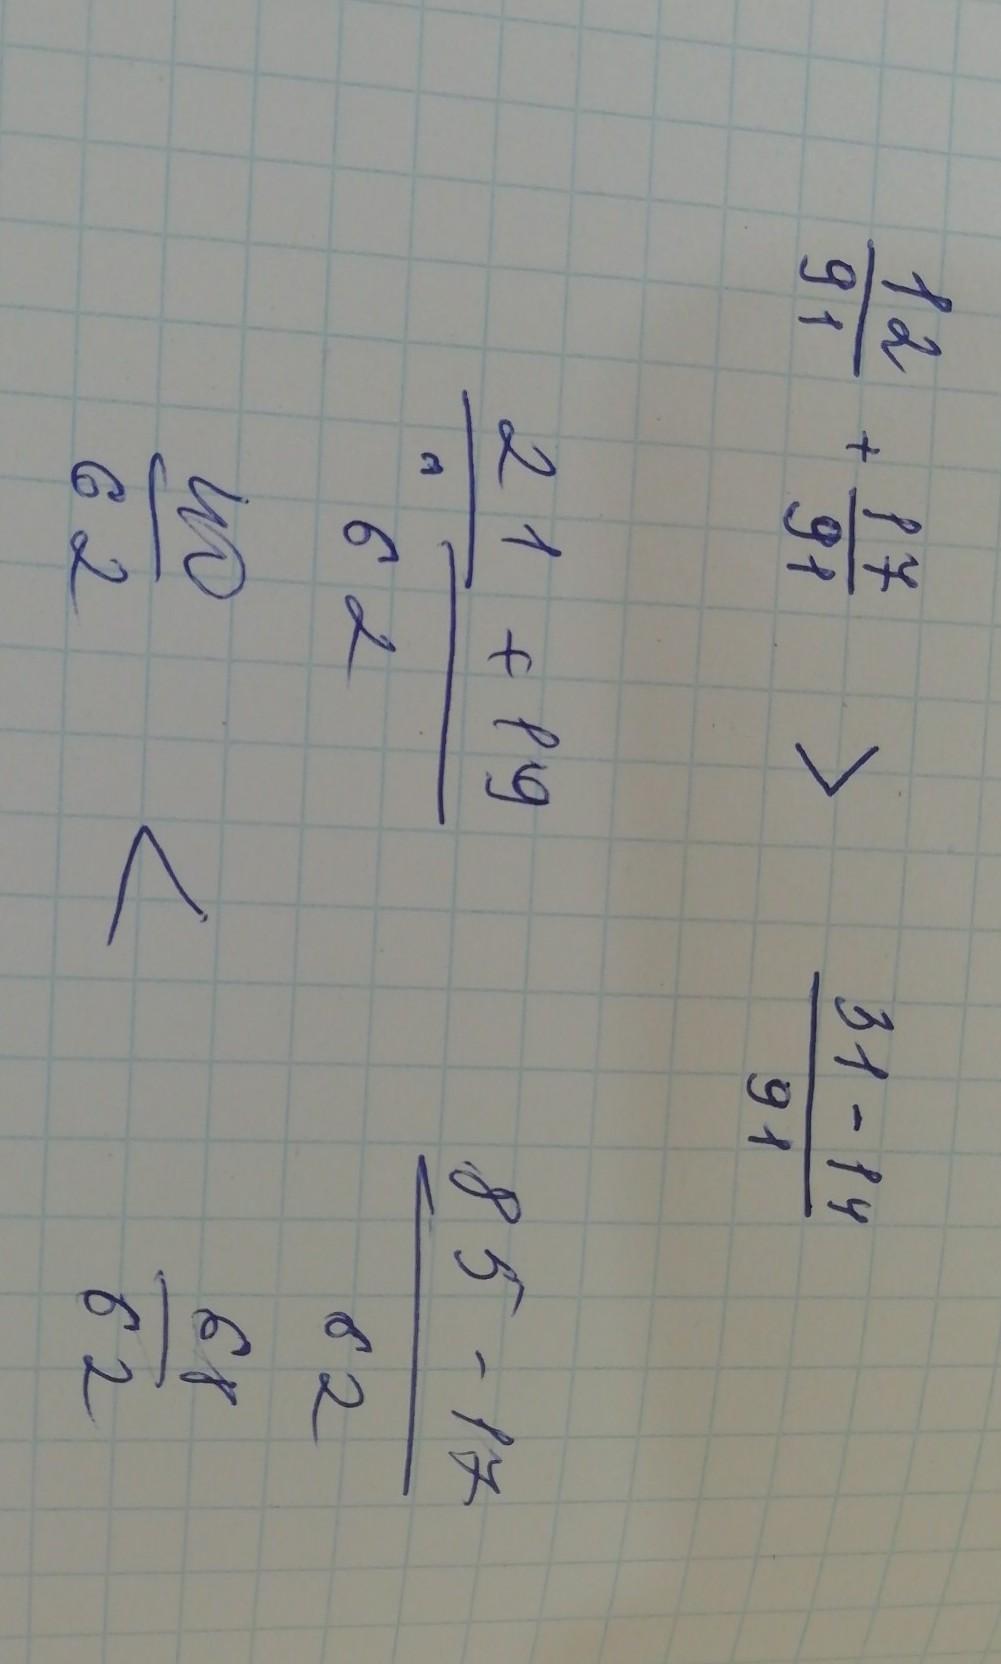 12/91 + 17/91 > 31 - 14/91
21 + 19/62 85 - 17/62
40/62 < 68/62